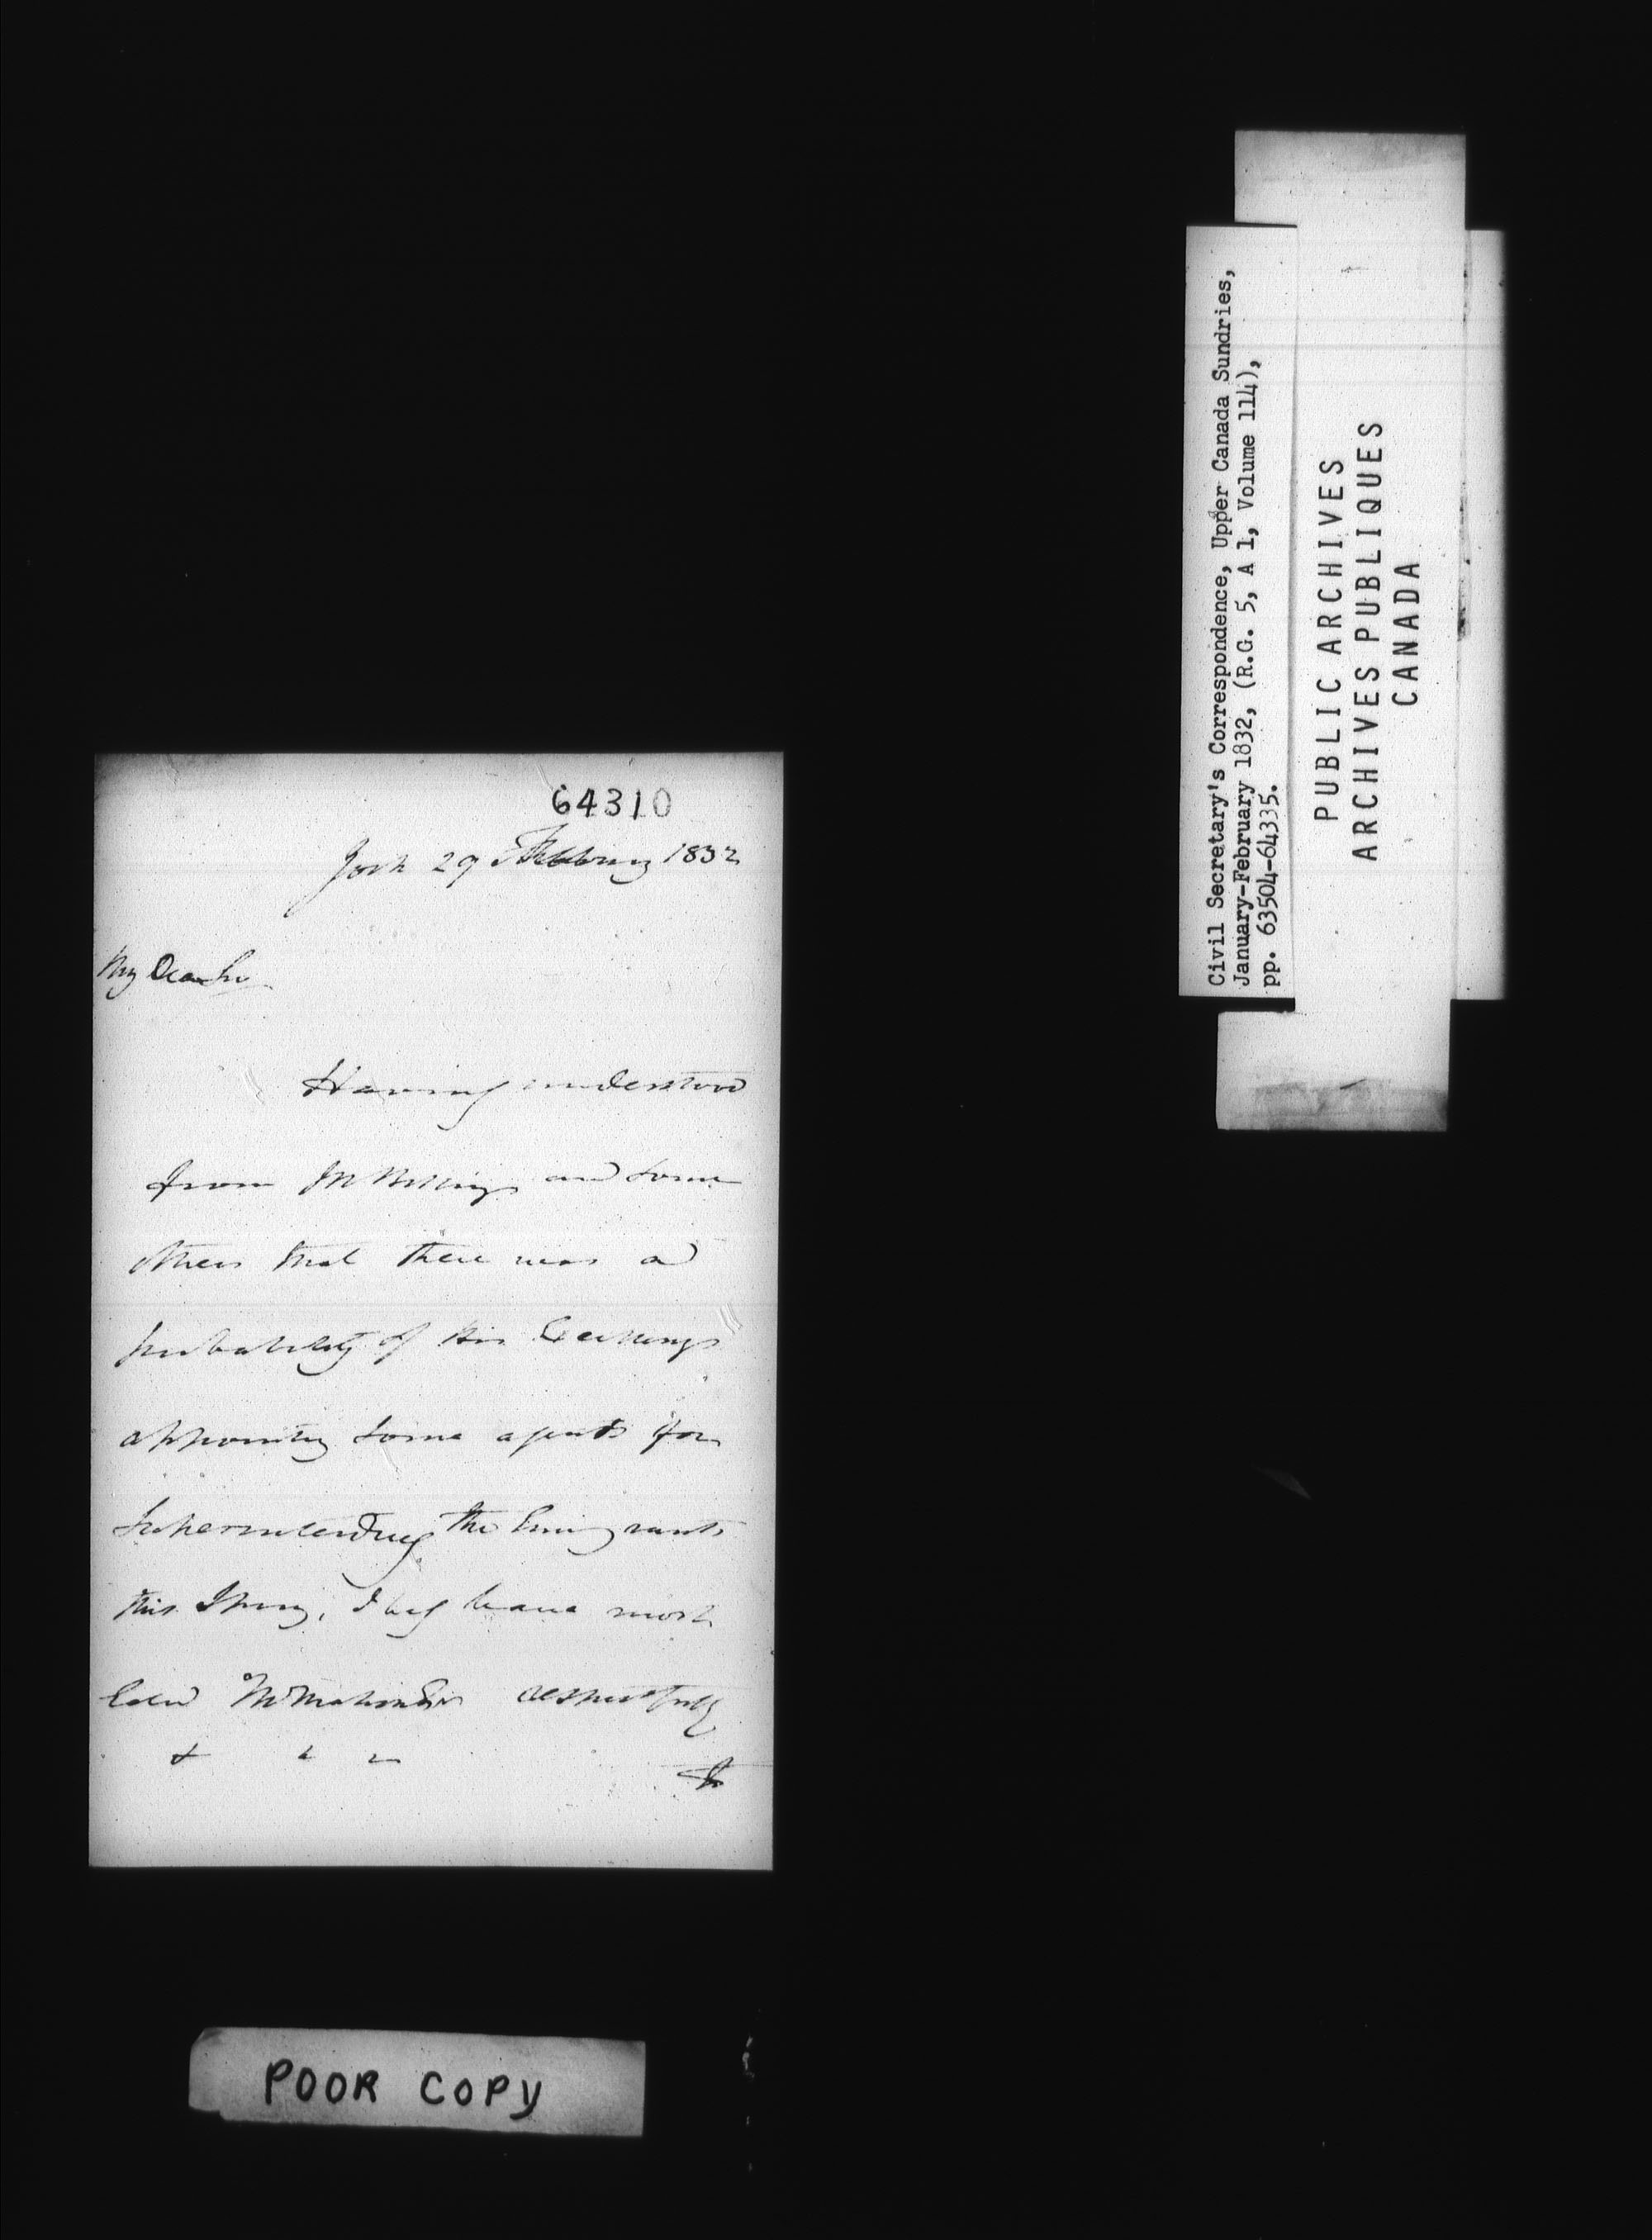 64310
York 29 February 1832
My Dear Sir
Having understood
from Mr Billings and some
others that there was a
probability of His Excellency's
appointing some agents for
Superintending the Emigrants
this Spring, I beg leave most
respectfully
to
Edwd McMahon Esqr
& & &
POOR COPY
Civil Secretary's Correspondence, Upper Canada Sundries,
January-February 1832, (R.G. 5, A 1, Volume 114),
pp. 63504-64335.
PUBLIC ARCHIVES
ARCHIVES PUBLIQUES
CANADA